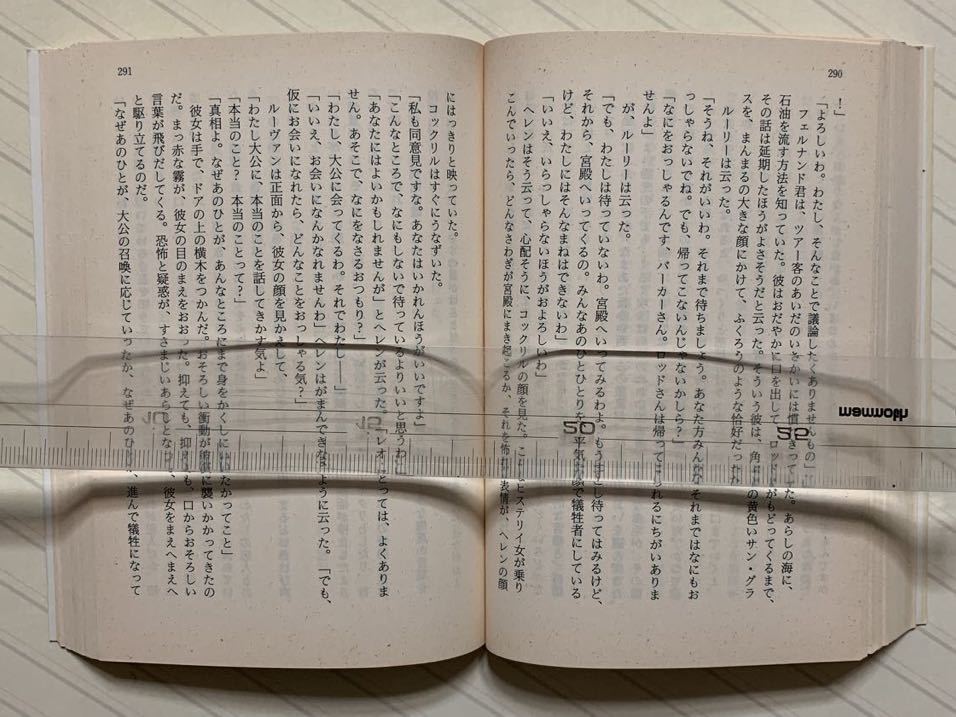 290
！」
「よろしいわ。わたし、そんなことで議論したくありませんもの」
フェルナンド君は、ツアー客のあいだのいさかいには慣れきって た。あらしの海に、
石油を流す方法を知っていた。彼はおだやかに口を出して ロッド がもどってくるまで、
その話は延期したほうがよさそうだと云った。そういう彼は、角 の黄色いサン・グラ
スを、まんまるの大きな顔にかけて、ふくろうのような恰好だった
ルーリーは云った。
「そうね、それがいいわ。それまで待ちましょう。あなた方みんな それまではなにもお
っしゃらないでね。でも、帰ってこないんじゃないかしら？」
「なにをおっしゃるんです、バーカーさん。ロッドさんは帰って られるにちがいありま
せんよ」
が、ルーリーは云った。
「でも、わたしは待っていないわ。宮殿へいってみるわよ。もうすこし待ってはみるけど、
それから、宮殿へいってくるの。みんなあのひとひとりを 平気な顔で犠牲者にしている
けど、わたしにはそんなまねはできないわ」
「いいえ、いらっしゃらないほうがおよろしいわ」
ヘレンはそう云って、心配そうに、コックリルの顔を見た。こ ヒステリイ女が乗り
こんでいったら、どんなさわぎが宮殿にまき起こるか、それを怖れ 表情が、ヘレンの顔
291
にはっきりと映っていた。
コックリルはすぐにうなずいた。
「私も同意見ですな。あなたはいかれんほうがいいですよ」
「こんなところで、なにもしないで待っているよりいいと思うわ」
「あなたにはよいかもしれませんが」とヘレンが云った。「レオ にとっては、よくありま
せん。あそこで、なにをなさるおつもり？」
「わたし、大公に会ってくるわ。それでわたし――」
「いいえ、お会いになんかなれませんわ」ヘレンはがまんできな ように云った。「でも、
仮にお会いになれたら、どんなことをおっしゃる気？」
ルーヴァンは正面から、彼女の顔を見かえして、
「わたし大公に、本当のことを話してきかす気よ」
「本当のこと？ 本当のことって？」
「真相よ。なぜあのひとが、あんなところにまで身をかくしに いたかってこと」
彼女は手で、ドアの上の横木をつかんだ。おそろしい衝動が彼女に襲いかかってきたの
だ。まっ赤な霧が、彼女の目のまえをおおった。抑えても、抑えても、口からおそろしい
言葉が飛びだしてくる。恐怖と疑惑が、すさまじいあらしとな 、彼女をまえへまえへ
と駆り立てるのだ。
「なぜあのひとが、大公の召喚に応じていったか、なぜあのひ 、進んで犠牲になって
50